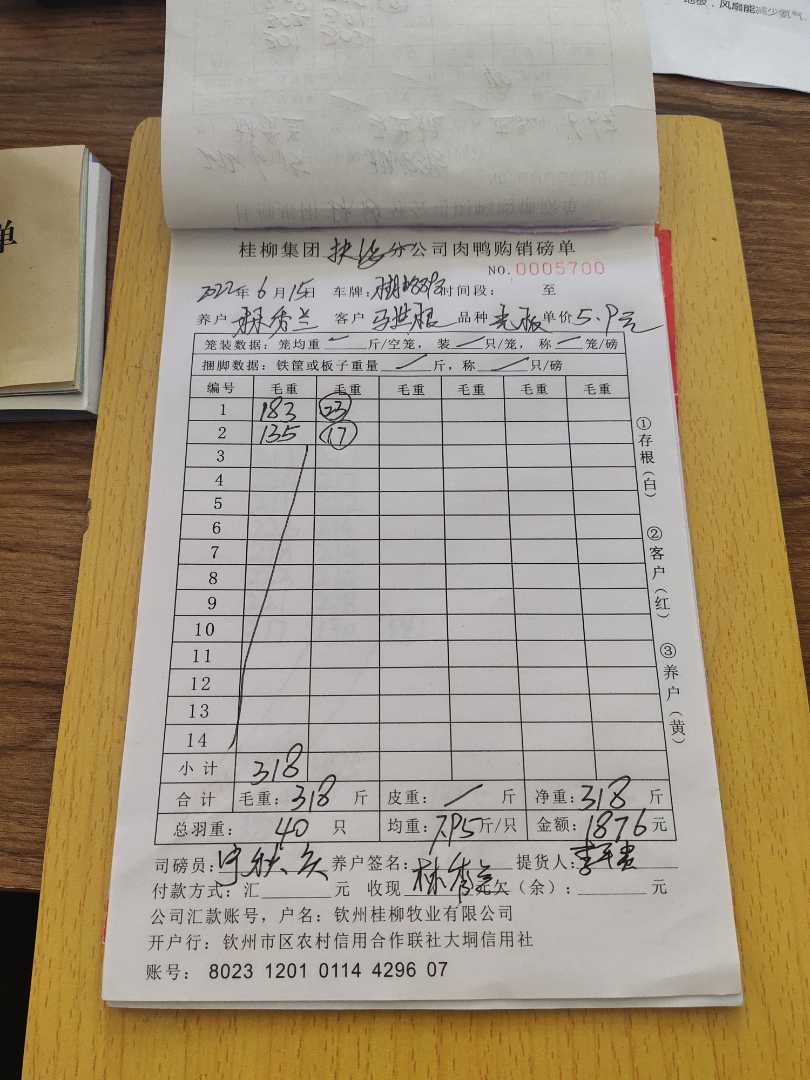 地板，风扇能减少氨气、
单
桂柳集团 分公司肉鸭购销磅单
NO.0005700
2022年6月15日 车牌: 时间段: 至
养户 林秀兰 客户 品种 单价5.9元
笼装数据: 笼均重 斤/空笼, 装 只/笼, 称 笼/磅
捆脚数据: 铁筐或板子重量 斤, 称 只/磅
编号 毛重 毛重 毛重 毛重 毛重 毛重
1 183 23
2 135 17
3
4
5
6
7
8
9
10
11
12
13
14
小计 318
合计 毛重: 318 斤 皮重: 斤 净重: 318 斤
总羽重: 40 只 均重: 7.95斤/只 金额: 1876元
司磅员: 养户签名: 林秀兰 提货人:
付款方式: 汇 元 收现 元欠(余): 元
公司汇款账号, 户名: 钦州桂柳牧业有限公司
开户行: 钦州市区农村信用合作联社大垌信用社
账号: 8023 1201 0114 4296 07
①存根(白)
②客户(红)
③养户(黄)